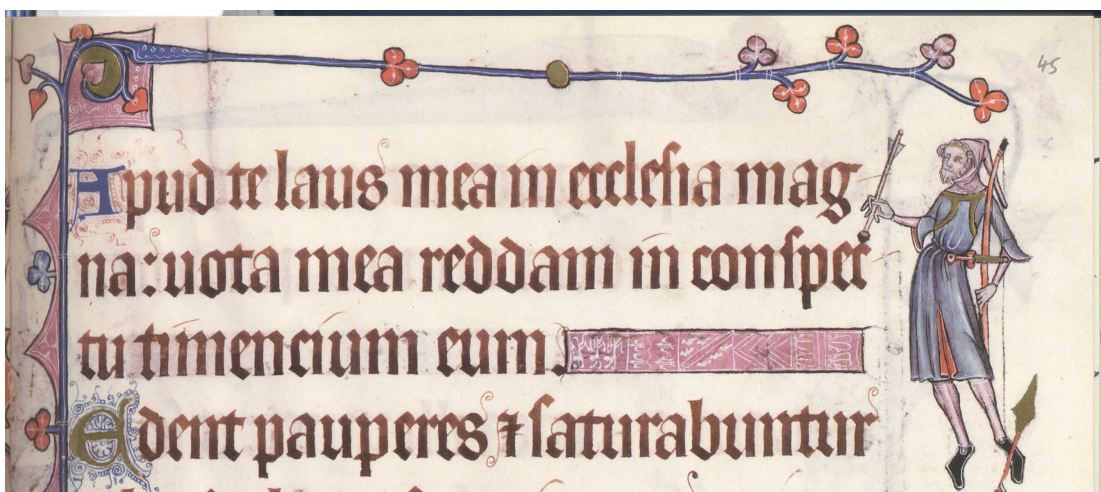 45
Apud te laus mea in ecclesia mag
na: uota mea reddam in conspec
tu timencium eum.
Edent pauperes ⁊ saturabuntur